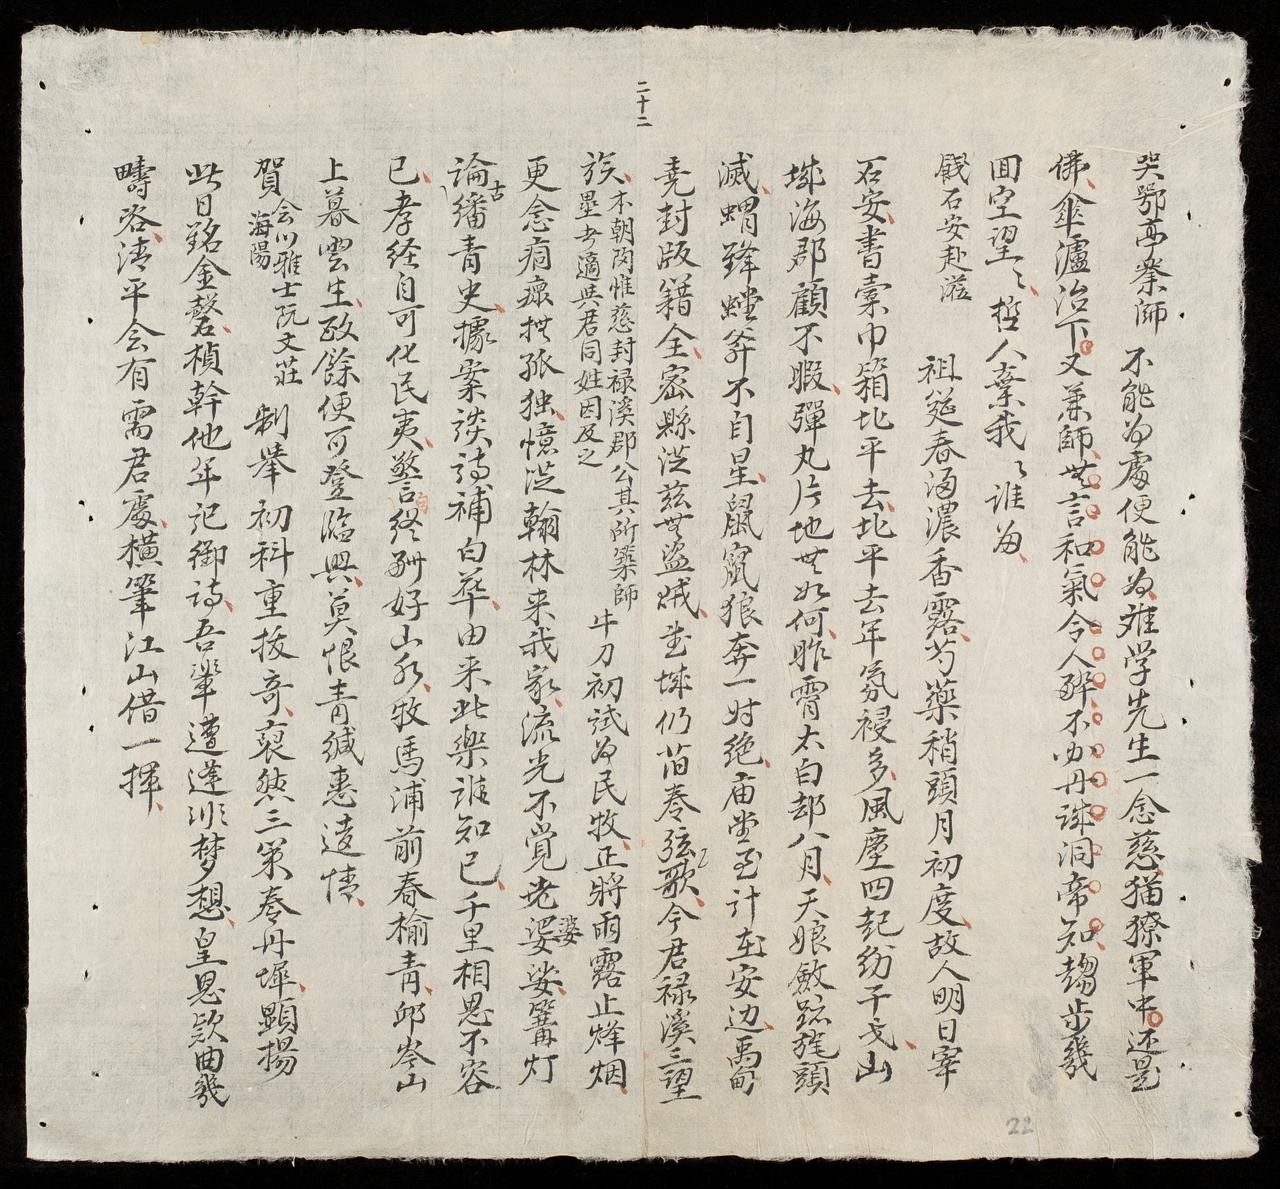 二十二
哭鄂亭蔡師 不能为處便能为难学先生一念慈猫獠軍中还是
佛傘瀘治下又兼師世言和氣令人醉不必丹诛洞帝知趨步幾
囬空望〻哲人棄我〻谁为
餞石安赴滋 祖筵春酒濃香露芍藥稍頭月初度故人明日宰
石安書橐巾箱北平去北平去年氛祲多風塵四起纷干戈山
城海郡顧不暇彈丸片地世如何昨霄太白却八月天娘敛跡旄頭
滅蝟鋒螳斧不自星鼠竄狼奔一时绝庙堂至计在安边禹甸
堯封版籍全密縣洪兹無盜賊武城仍旧奏弦歌今君禄溪三望
族本朝陶惟慈封禄溪郡公其所築師壘考適與君同姓因及之 牛刀初試为民牧正將雨露止烽烟
更念痌瘝拱孤独憶洪翰林来我家流光不觉老婆娑篝灯
論古繙青史據案談诗補白華由来此樂谁知已千里相思不容
已孝经自可化民夷警句终酬好山水牧馬浦前春榆青邱岑山
上暮雲生政餘便可登臨興莫恨青緘惠遠情
賀会川海陽雅士阮文莊 制举初科重拔奇裒然三策奏丹墀顯揚
此日銘金磬楨幹他年记御诗吾辈遭逢水梦想皇恩欵曲幾
疇咨清平会有需君處横筆江山借一揮
22